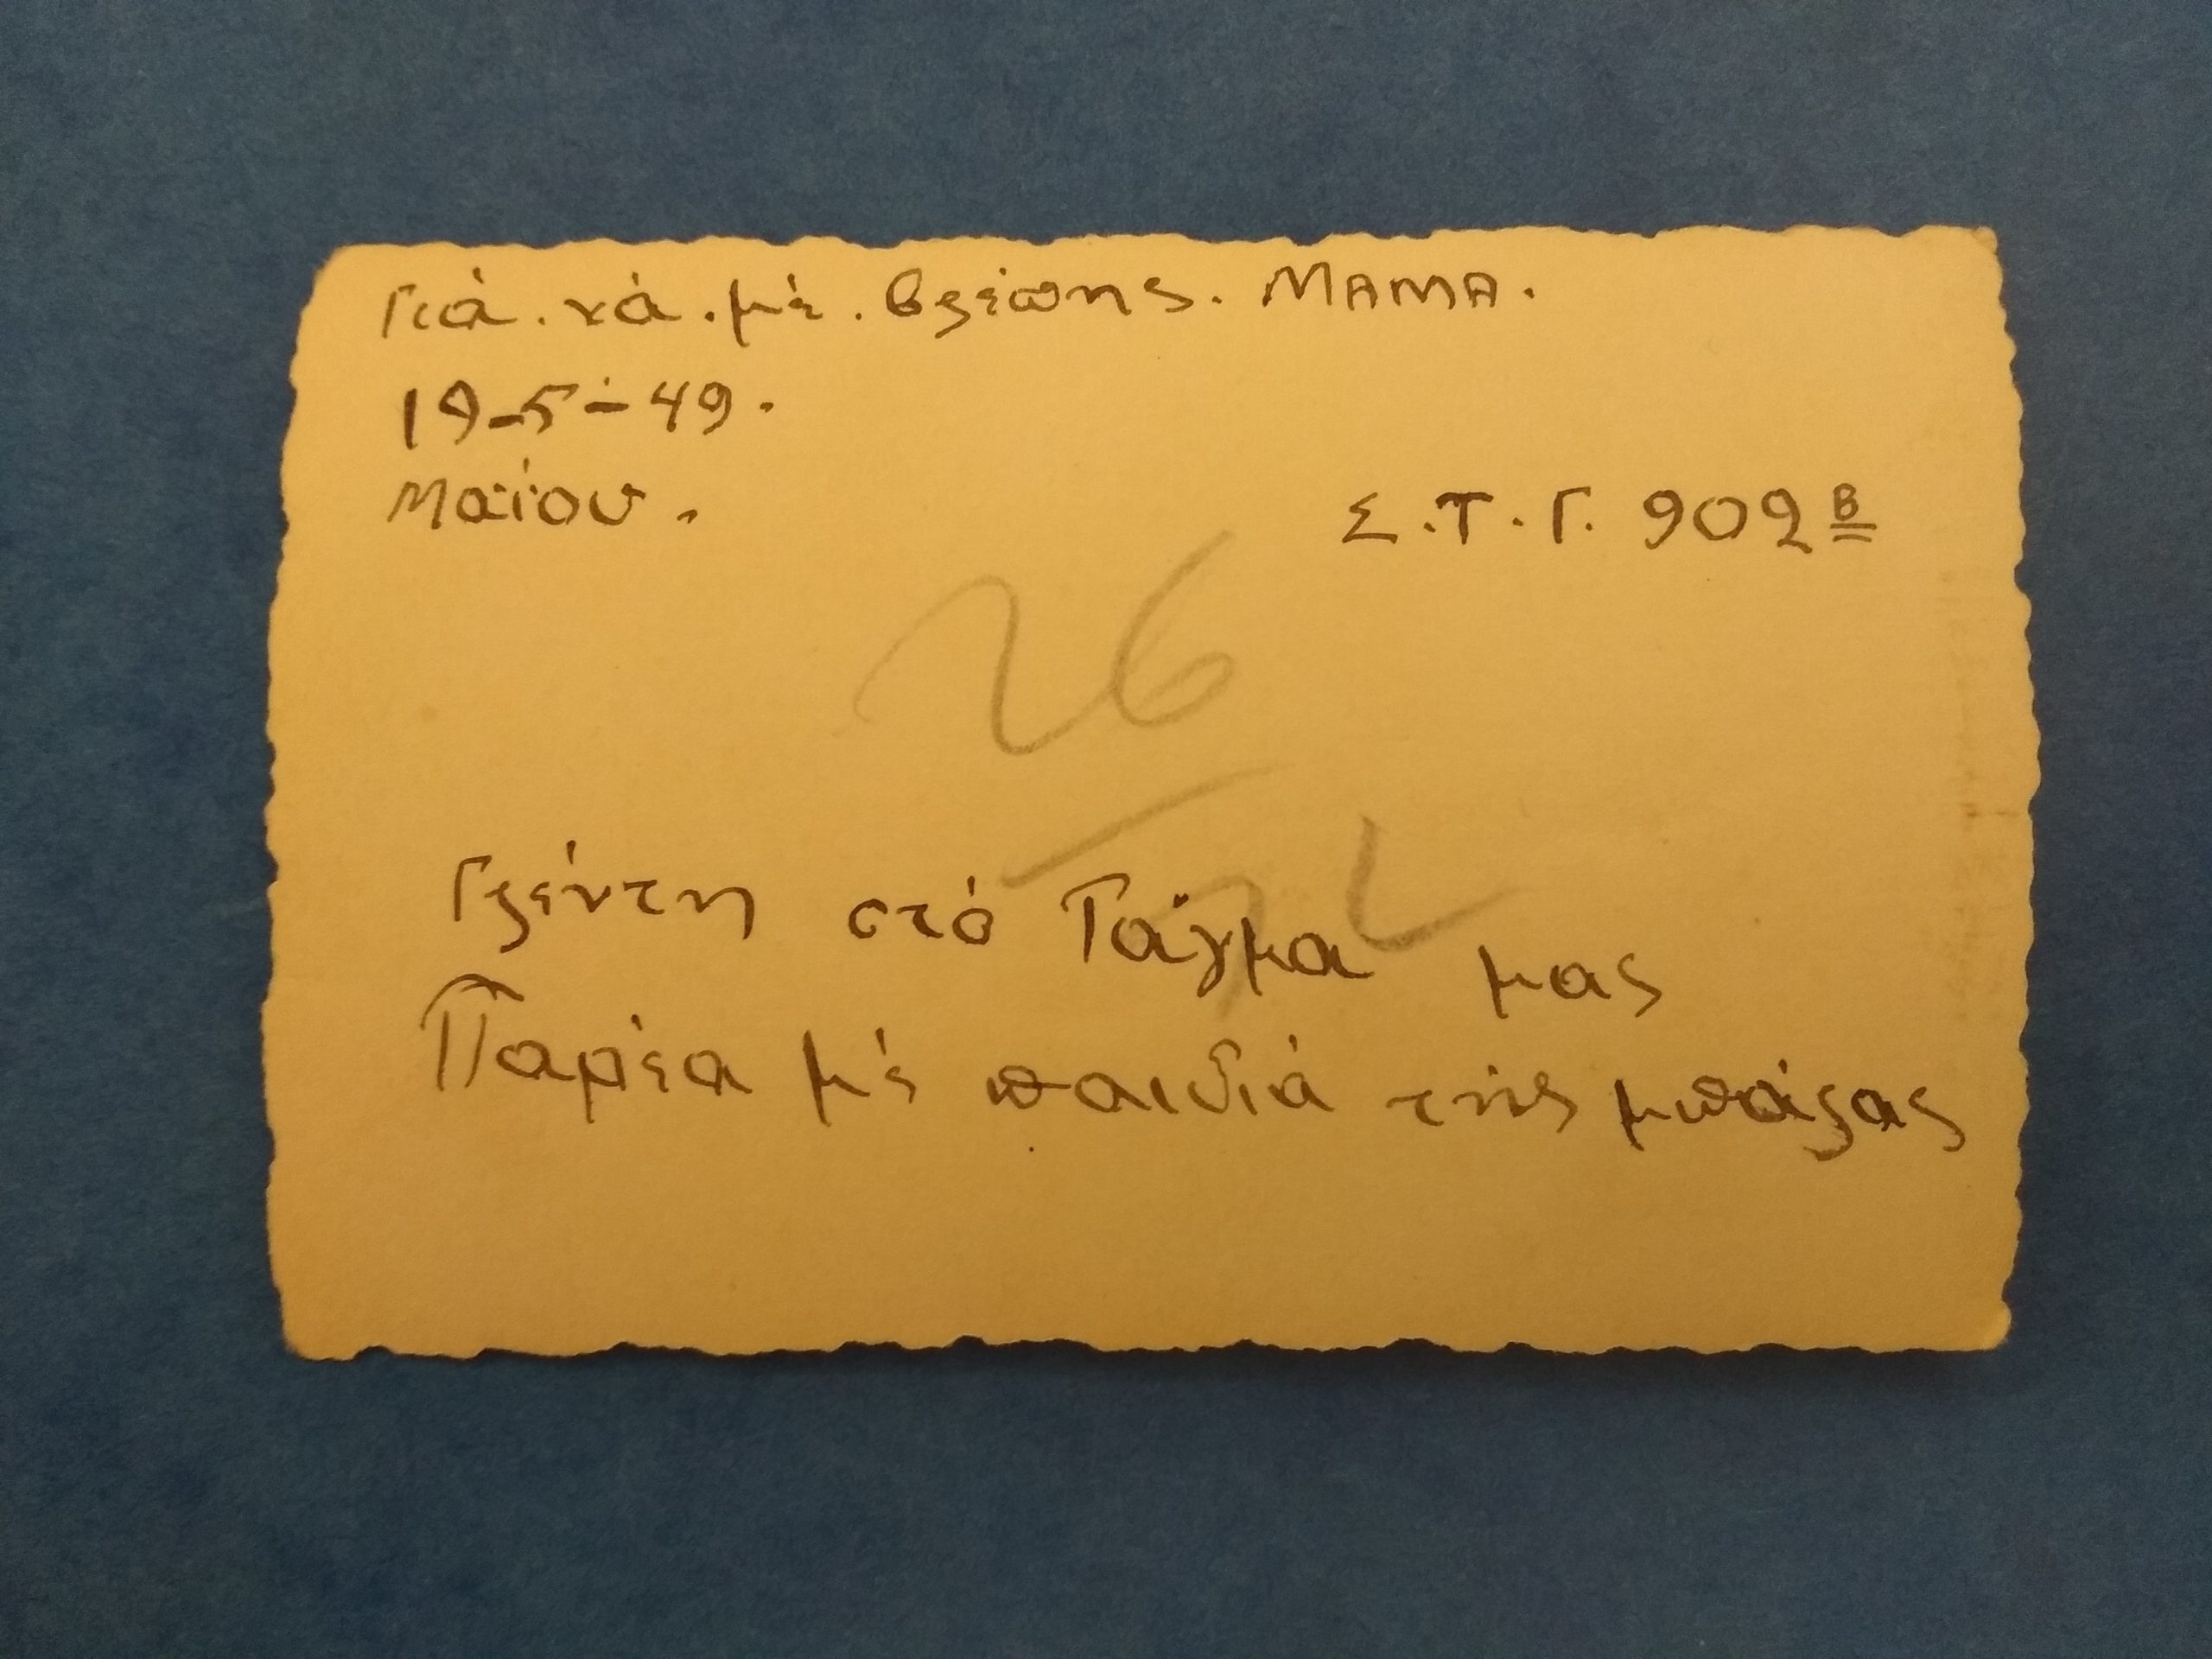 Γιά. νά. μέ. βλέπης. ΜΑΜΑ.
19-5-49.
Μαΐου.
Σ.Τ.Γ. 902 Β
26
Γλέντη στό Τάγμα μας
Παρέα μέ παιδιά τής μπάλας